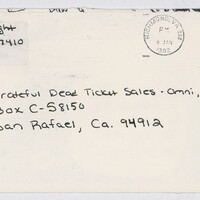 ght
7410
RICHMOND, VA
PM
6 JAN
rateful Dead Ticket Sales - Omni,
Box C-S8150
San Rafael, Ca. 94912